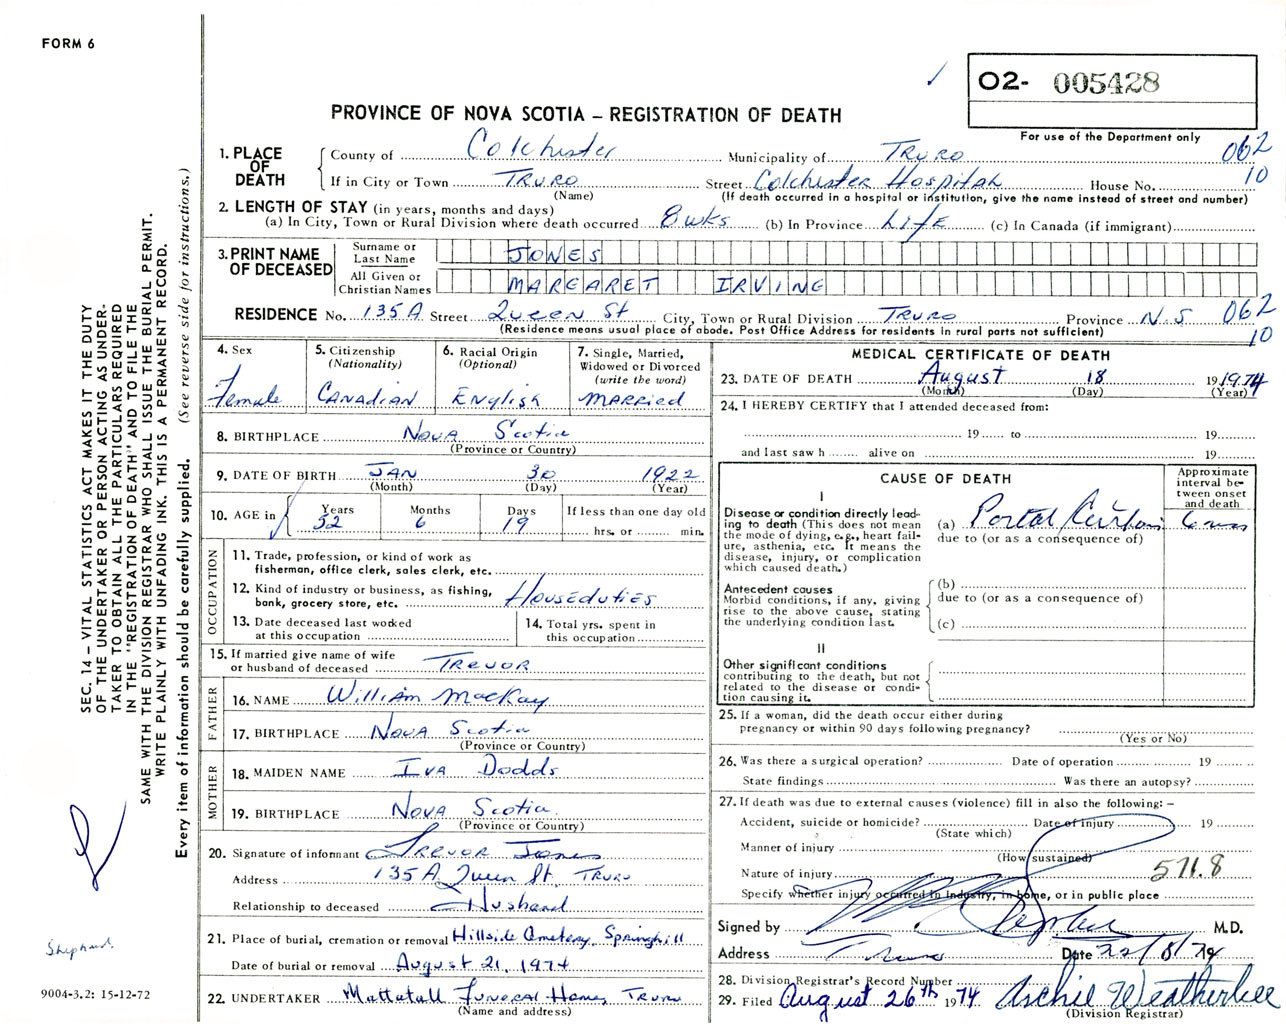 FORM 6
O2- 005428
For use of the Department only
PROVINCE OF NOVA SCOTIA – REGISTRATION OF DEATH
1. PLACE OF DEATH
County of Colchester Municipality of TRURO 062
If in City or Town TRURO Street Colchester Hospital House No. 10
(Name) (If death occurred in a hospital or institution, give the name instead of street and number)
2. LENGTH OF STAY (in years, months and days)
(a) In City, Town or Rural Division where death occurred 8 wks (b) In Province LIFE (c) In Canada (if immigrant)
3. PRINT NAME OF DECEASED
Surname or Last Name JONES
All Given or Christian Names MARGARET IRVING
RESIDENCE No. 135A Street Queen St City, Town or Rural Division TRURO Province N.S 062
(Residence means usual place of abode. Post Office Address for residents in rural parts not sufficient) 10
4. Sex
Female
5. Citizenship
(Nationality)
CANADIAN
6. Racial Origin
(Optional)
English
7. Single, Married,
Widowed or Divorced
(write the word)
MARRIED
8. BIRTHPLACE Nova Scotia
(Province or Country)
9. DATE OF BIRTH JAN 30 1922
(Month) (Day) (Year)
10. AGE in Years 52 Months 6 Days 19 If less than one day old
hrs. or min.
OCCUPATION
11. Trade, profession, or kind of work as
fisherman, office clerk, sales clerk, etc.
12. Kind of industry or business, as fishing,
bank, grocery store, etc. Houseduties
13. Date deceased last worked
at this occupation
14. Total yrs. spent in
this occupation
15. If married give name of wife
or husband of deceased TREVOR
FATHER
16. NAME William MacKay
17. BIRTHPLACE Nova Scotia
(Province or Country)
MOTHER
18. MAIDEN NAME Iva Dodds
19. BIRTHPLACE Nova Scotia
(Province or Country)
20. Signature of informant Trevor Jones
Address 135A Queen St. TRURO
Relationship to deceased Husband
21. Place of burial, cremation or removal Hillside Cemetery, Springhill
Date of burial or removal August 21, 1974
22. UNDERTAKER Mattatall Funeral Home, Truro
(Name and address)
MEDICAL CERTIFICATE OF DEATH
23. DATE OF DEATH August 18 19 1974
(Month) (Day) (Year)
24. I HEREBY CERTIFY that I attended deceased from:
19 to 19
and last saw h alive on 19
CAUSE OF DEATH
Approximate interval between onset and death
I
Disease or condition directly leading to death (This does not mean the mode of dying, e.g., heart failure, asthenia, etc. It means the disease, injury, or complication which caused death.)
(a) Portal
due to (or as a consequence of)
Antecedent causes
Morbid conditions, if any, giving rise to the above cause, stating the underlying condition last.
(b)
due to (or as a consequence of)
(c)
II
Other significant conditions
contributing to the death, but not related to the disease or condition causing it.
25. If a woman, did the death occur either during
pregnancy or within 90 days following pregnancy?
(Yes or No)
26. Was there a surgical operation? Date of operation 19
State findings Was there an autopsy?
27. If death was due to external causes (violence) fill in also the following: –
Accident, suicide or homicide? Date of injury 19
(State which)
Manner of injury
(How sustained)
Nature of injury 571.8
Specify whether injury occurred in industry, in home, or in public place
Signed by M.D.
Address Truro Date 22/8/74
28. Division Registrar's Record Number
29. Filed August 26th 1974 Archie Weatherbee
(Division Registrar)
SEC. 14 – VITAL STATISTICS ACT MAKES IT THE DUTY
OF THE UNDERTAKER OR PERSON ACTING AS UNDER-
TAKER TO OBTAIN ALL THE PARTICULARS REQUIRED
IN THE "REGISTRATION OF DEATH" AND TO FILE THE
SAME WITH THE DIVISION REGISTRAR WHO SHALL ISSUE THE BURIAL PERMIT.
WRITE PLAINLY WITH UNFADING INK. THIS IS A PERMANENT RECORD.
Every item of information should be carefully supplied. (See reverse side for instructions.)
Shephard.
9004-3.2: 15-12-72